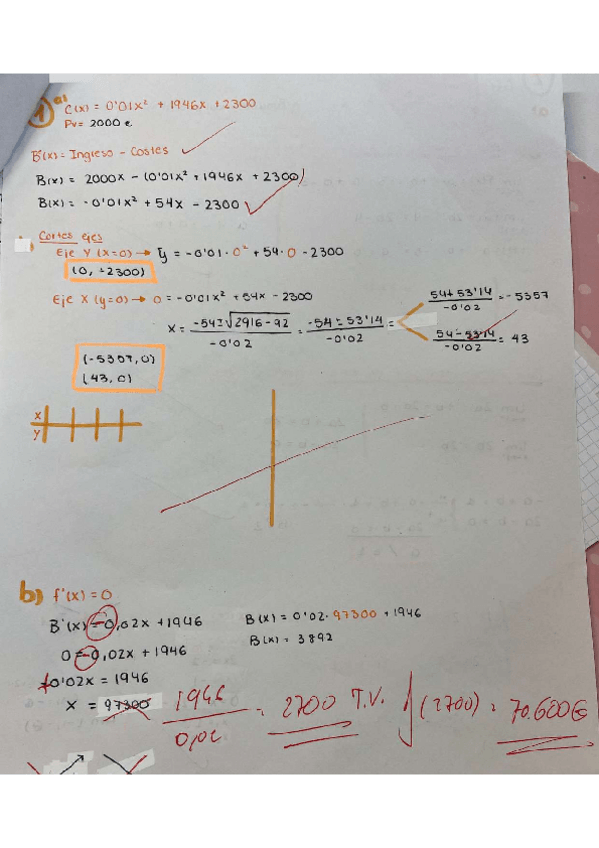 1 a) C(x) = 0'01x² + 1946x + 2300
Pv = 2000 e.
B(x) = Ingreso - Costes
B(x) = 2000x - (0'01x² + 1946x + 2300)
B(x) = -0'01x² + 54x - 2300
Cortes ejes
Eje Y (x=0) → y = -0'01·0² + 54·0 - 2300
(0, -2300)
Eje X (y=0) → 0 = -0'01x² + 54x - 2300
x = -54±√2916-92 / -0'02 = -54 ± 53'14 / -0'02 =
54+53'14 / -0'02 = -5357
54-53'14 / -0'02 = 43
(-5357, 0)
(43, 0)
x
y
b) f'(x) = 0
B'(x) = 0,02x + 1946
B(x) = 0'02·97300 + 1946
0 = -0,02x + 1946
B(x) = 3892
0'02x = 1946
x = 97300
1946 / 0,02 = 2700 T.V. f(2700) = 70.600€